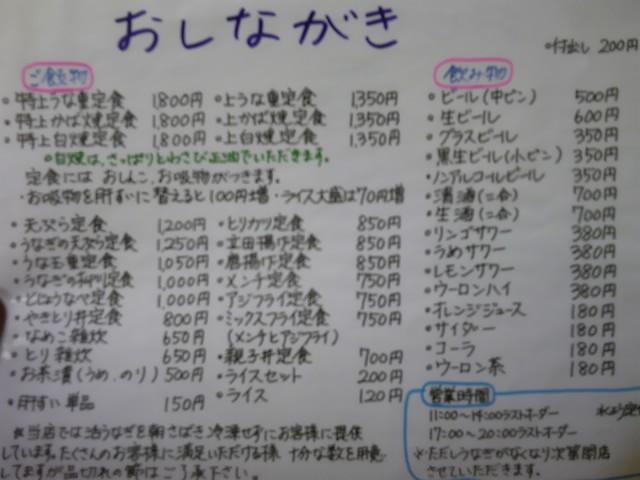 おしながき
・付出し 200円
ご飲物
・特上うな重定食 1,800円 ・上うな重定食 1,350円
・特上かば焼定食 1,800円 ・上かば焼定食 1,350円
・特上白焼定食 1,800円 ・上白焼定食 1,350円
◦白焼は、さっぱりとわさび正油でいただきます。
定食には おしんこ、お吸物がつきます。
・お吸物を肝すいに替えると100円増・ライス大盛は70円増
・天ぷら定食 1,200円 ・とりカツ定食 850円
・うなぎの天ぷら定食 1,250円 ・立田揚げ定食 850円
・うな玉重定食 1,050円 ・唐揚げ定食 850円
・うなぎの柳川定食 1,000円 ・メンチ定食 750円
・どじょうなべ定食 1,000円 ・アジフライ定食 750円
・やきとり丼定食 800円 ・ミックスフライ定食 750円
・なめこ雑炊 650円 (メンチとアジフライ)
・とり雑炊 650円 ・親子丼定食 700円
・お茶漬(うめ、のり) 500円 ・ライスセット 200円
・肝すい単品 150円 ・ライス 120円
※当店では活うなぎを朝さばき冷凍せずにお客様に提供
しています。たくさんのお客様に満足いただける様 十分な数を用意
してますが品切れの節はご了承下さい。
飲み物
・ビール(中ビン) 500円
・生ビール 600円
・グラスビール 350円
・黒生ビール(小ビン) 350円
・ノンアルコールビール 350円
・清酒(二合) 700円
・生酒(二合) 700円
・リンゴサワー 380円
・うめサワー 380円
・レモンサワー 380円
・ウーロンハイ 380円
・オレンジジュース 180円
・サイダー 180円
・コーラ 180円
・ウーロン茶 180円
営業時間
11:00〜14:00ラストオーダー
17:00〜20:00ラストオーダー
※ただしうなぎがなくなり次第閉店
させていただきます。